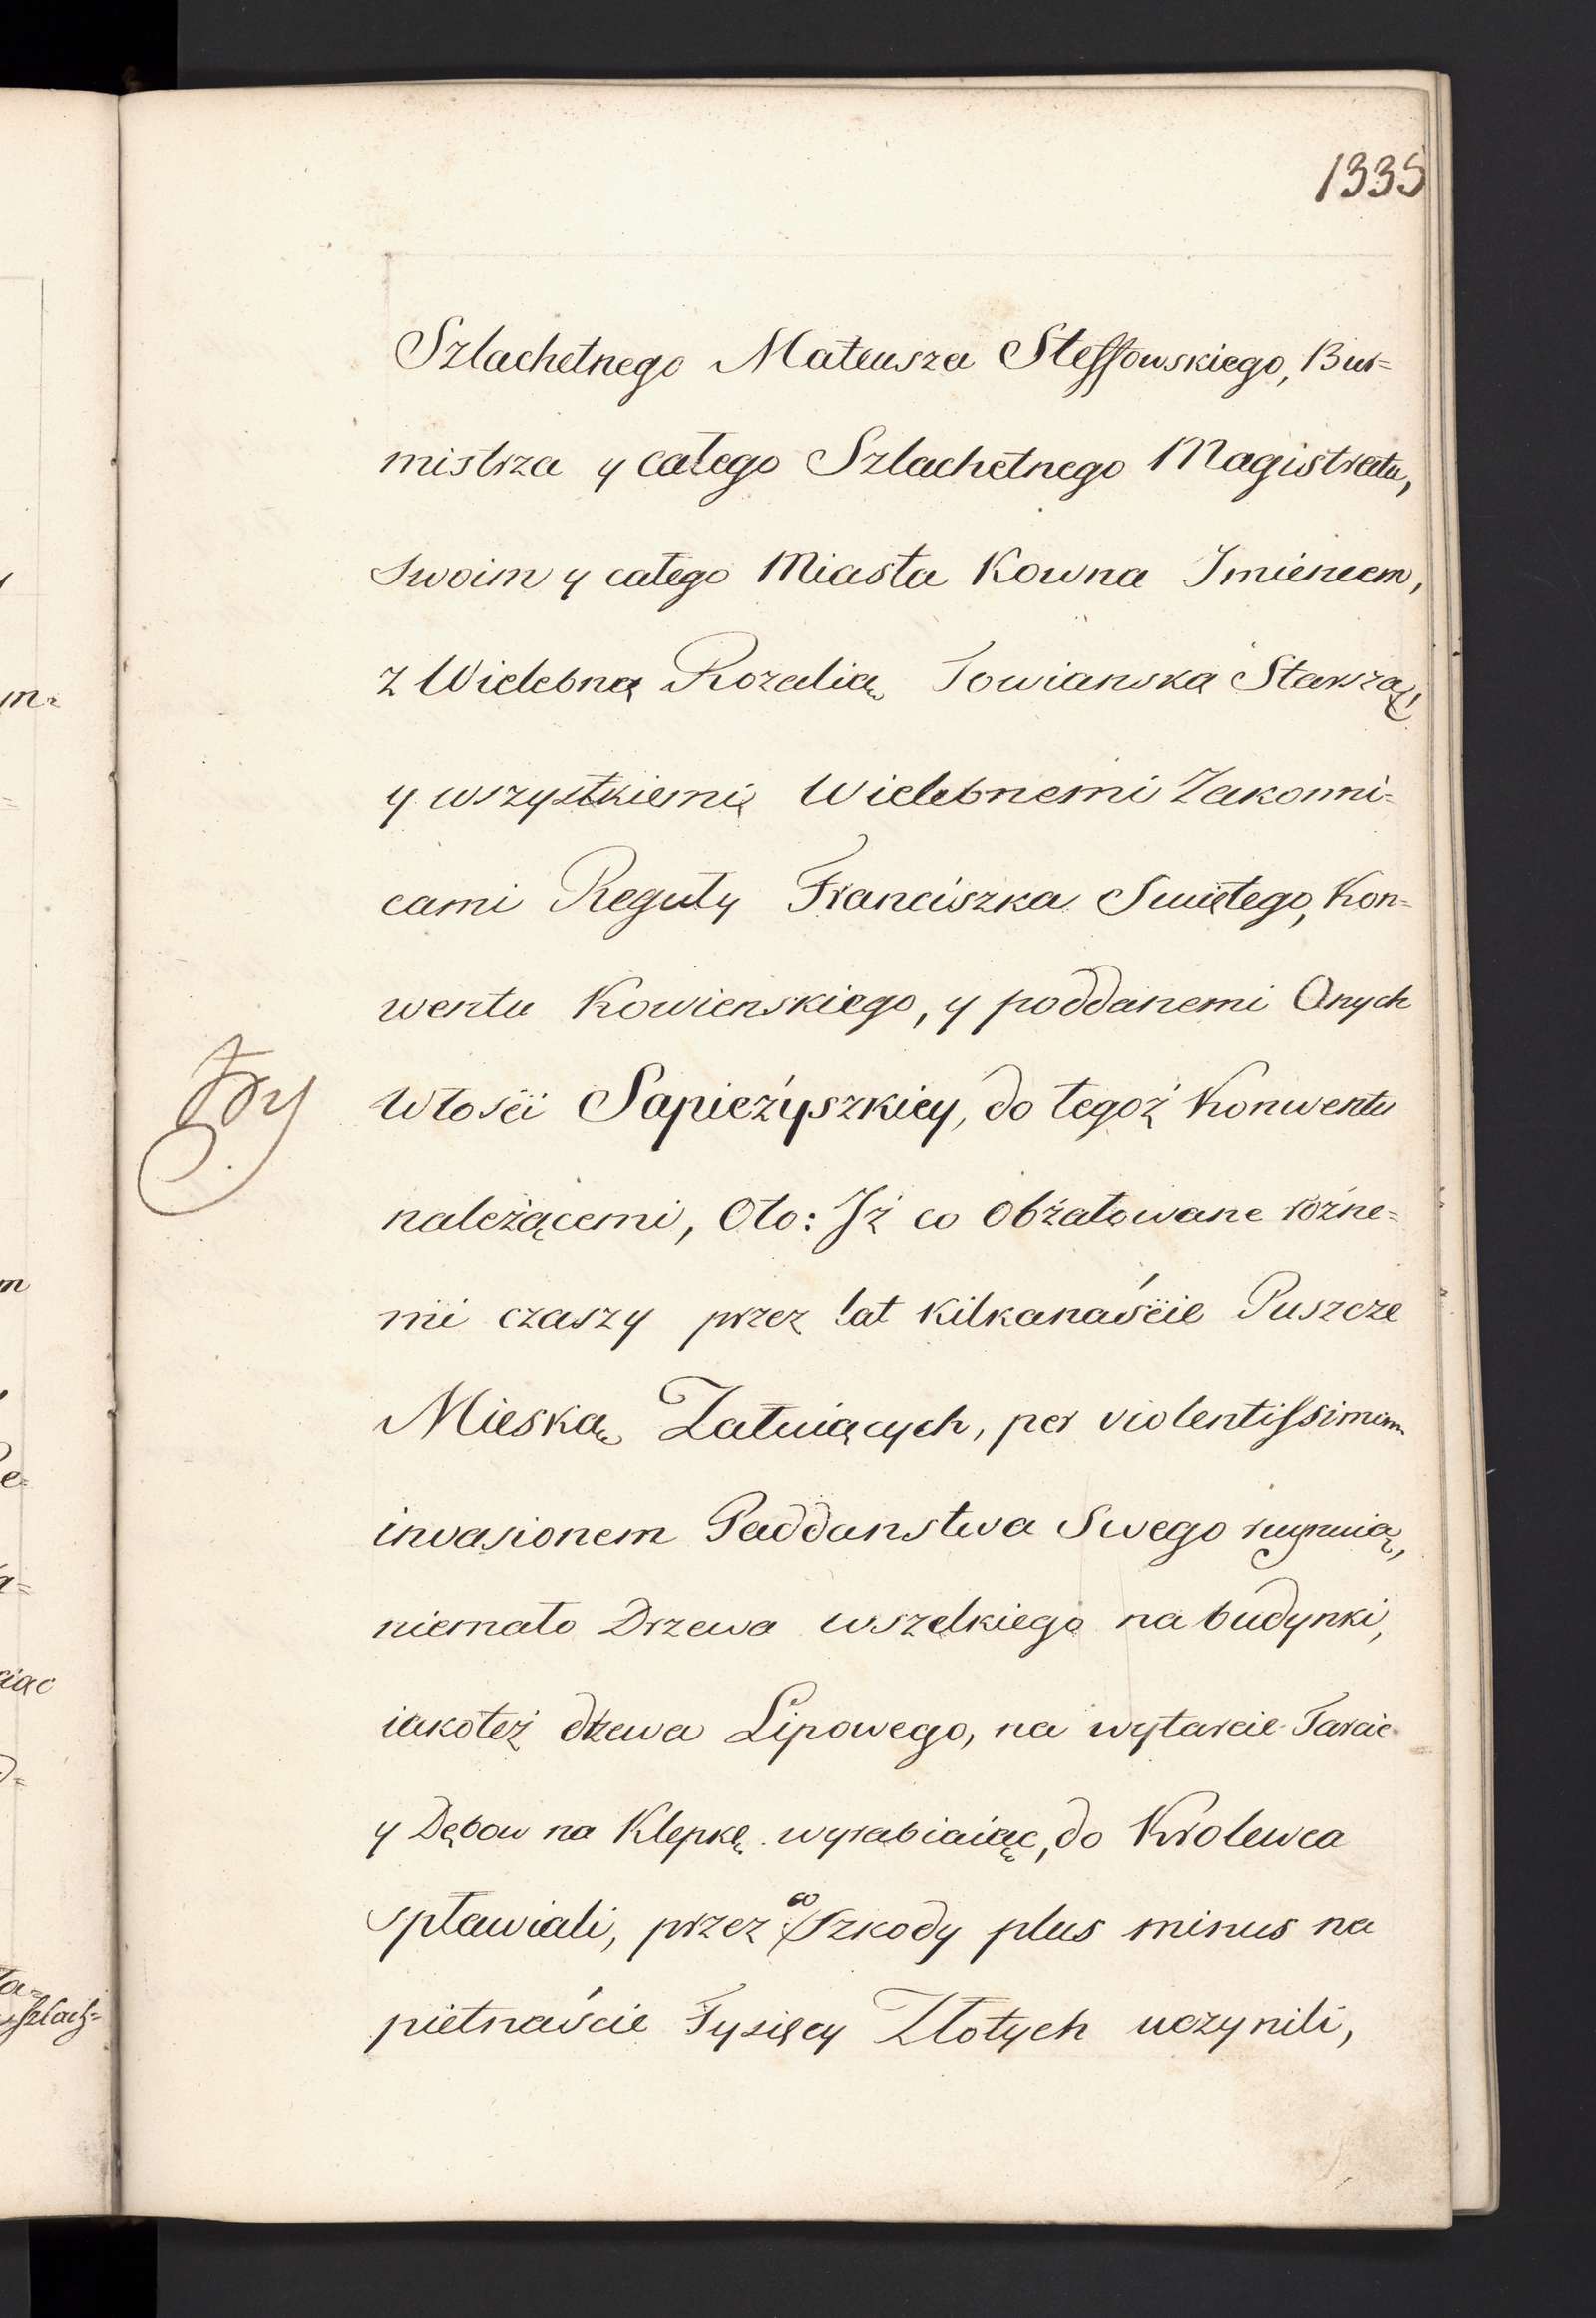 1335
Szlachetnego Mateusza Steffowskiego, Bur=
mistrza y całego Szlachetnego Magistratu,
swoim y całego Miasta Kowna Jmieniem,
z Wielebną Rozalią Towianską Starszą,
y wszystkiemi Wielebnemi Zakonni=
cami Reguły Franciszka Swiętego, Kon=
wentu Kowienskiego, y poddanemi Onych
Włosci Sapieżyszkiey, do tegoż Konwentu
należącemi, Oto: Jż co Obżałowane rożne=
mi czaszy przez lat kilkanaście Puszcze
Mieską Żałuiących, per violentissimam
invasionem Paddanstwa Swego ruynuią,
niemało Drzewa wszelkiego na budynki,
iakoteż dżewa Lipowego, na wytarcie Tarcic
y Dębow na Klepkę wyrabiaiąc, do Krolewca
spławiali, przez co Szkody plus minus na
pietnaście Tysięcy Złotych uczynili,
m=
m
e=
a=
ciąc
Szlach=